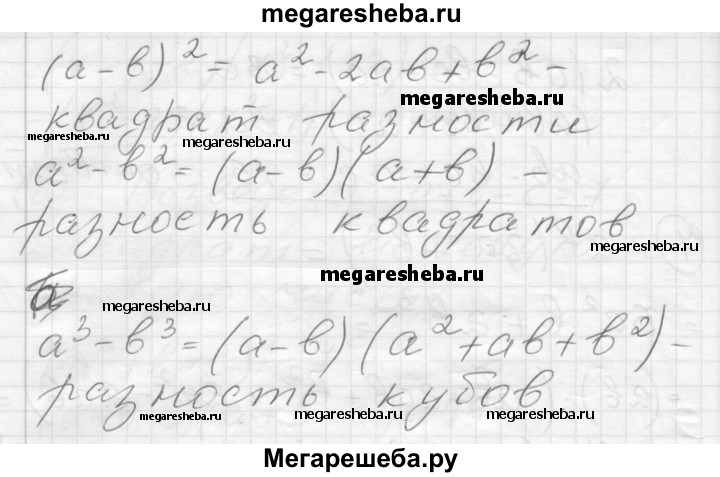 megaresheba.ru
(а-в)² = а² - 2ав + в² -
megaresheba.ru
квадрат разности
megaresheba.ru
megaresheba.ru
а² - в² = (а-в)(а+в) -
разность квадратов
megaresheba.ru
megaresheba.ru
megaresheba.ru
а³ - в³ = (а-в)(а² + ав + в²) -
разность кубов
megaresheba.ru
megaresheba.ru
megaresheba.ru
Мегарешеба.ру